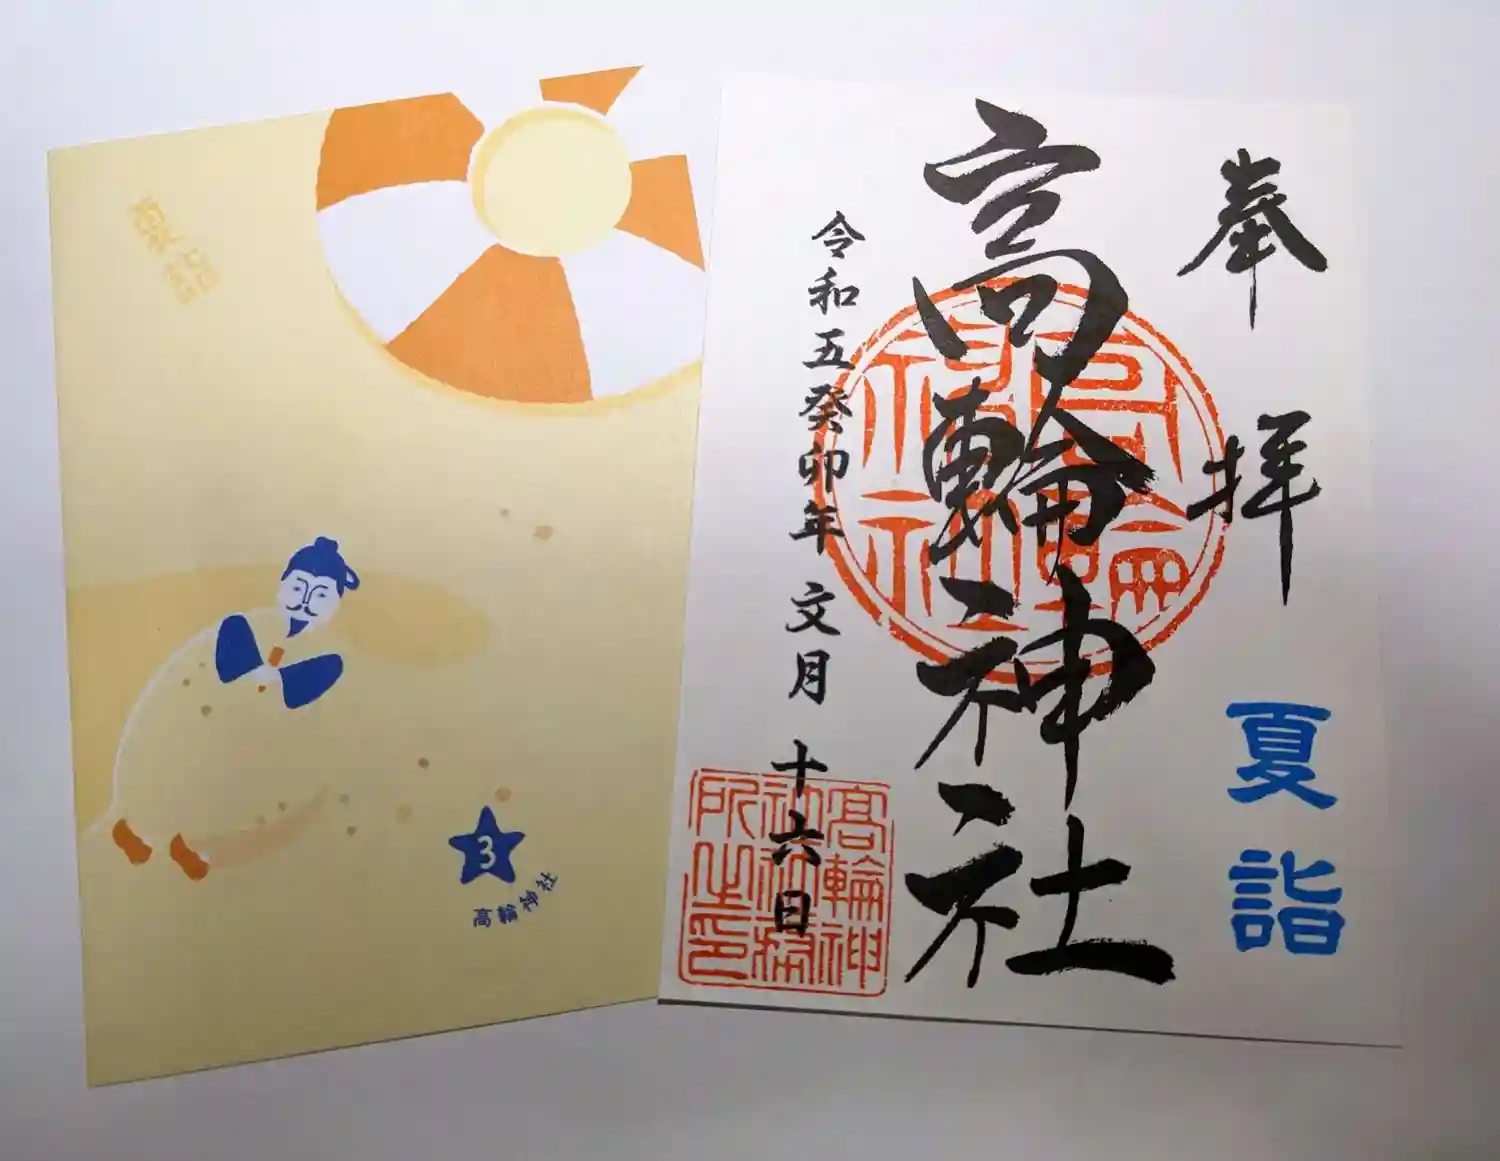 夏詣
3
高輪神社
奉拝
夏詣
高輪神社
令和五癸卯年 文月 十六日
高輪神社
高輪神
社社務
所之印